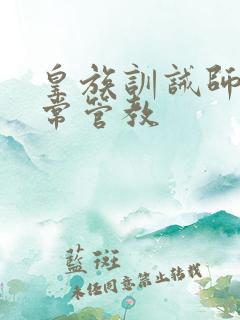 皇族訓誡師
常管教
藍斑
未经同意禁止转载